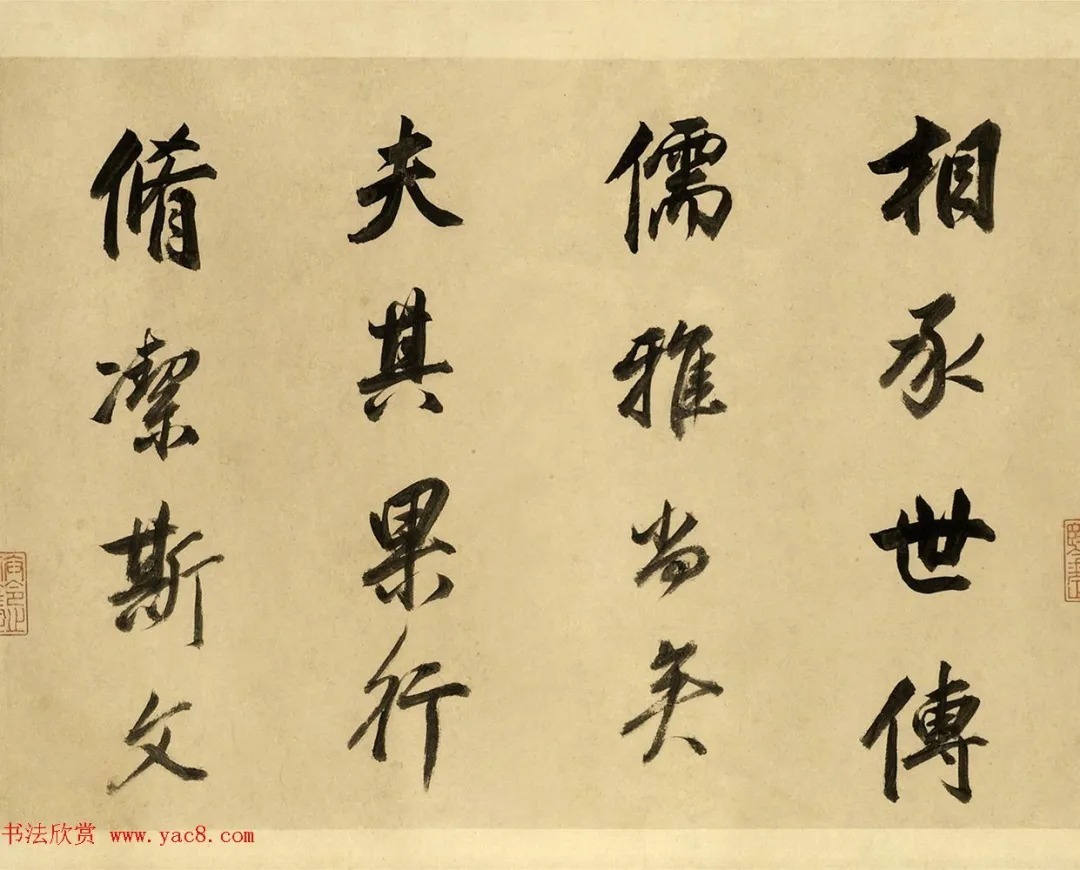 相承世傳
儒雅尚矣
夫其果行
脩潔斯文
书法欣赏 www.yac8.com